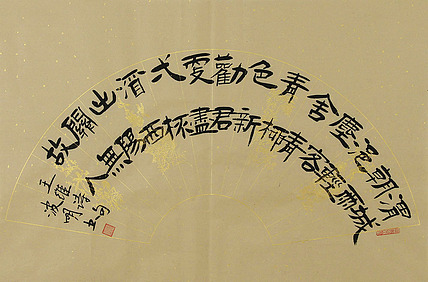 渭城
朝雨
浥輕
塵客
舍青
青柳
色新
勸君
更盡
弌杯
酒西
出陽
關無
故人
王維詩句
波明書